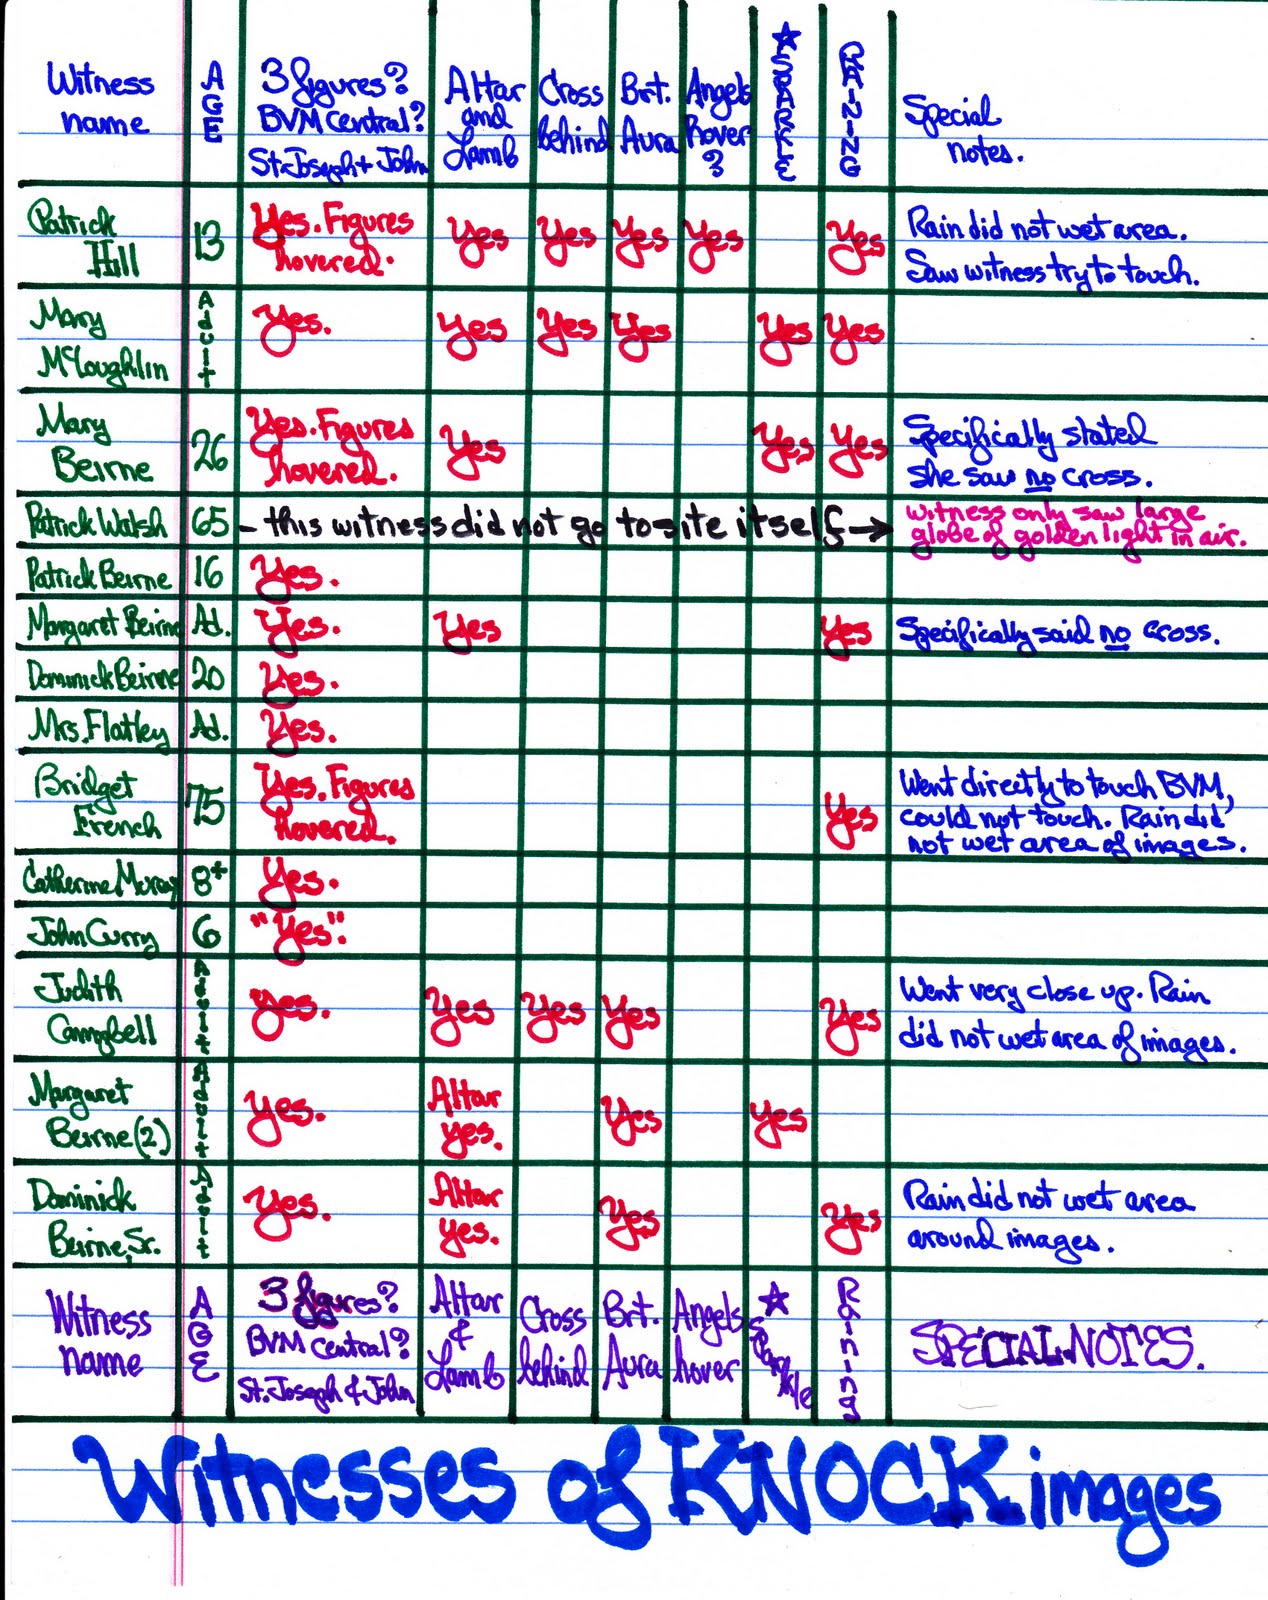 Witness name
AGE
3 figures? BVM central? St. Joseph + John
Altar and Lamb
Cross behind
Brt. Aura
Angels hover?
☆ SPARKLE
RAINING
Special notes.
Patrick Hill
13
Yes. Figures hovered.
Yes
Yes
Yes
Yes
Yes
Rain did not wet area.
Saw witness try to touch.
Mary McLoughlin
Adult
Yes.
Yes
Yes
Yes
Yes
Yes
Mary Beirne
26
Yes. Figures hovered.
Yes
Yes
Yes
Specifically stated
she saw no cross.
Patrick Walsh
65
- this witness did not go to site itself →
witness only saw large
globe of golden light in air.
Patrick Beirne
16
Yes.
Margaret Beirne
Ad.
Yes.
Yes
Yes
Specifically said no cross.
Dominick Beirne
20
Yes.
Mrs. Flatley
Ad.
Yes.
Bridget French
75
Yes. Figures hovered.
Yes
Went directly to touch BVM,
could not touch. Rain did
not wet area of images.
Catherine Murray
8+
Yes.
John Curry
6
"Yes".
Judith Campbell
Adult
Yes.
Yes
Yes
Yes
Yes
Went very close up. Rain
did not wet area of images.
Margaret Beirne (2)
Adult
Yes.
Altar yes.
Yes
Yes
Dominick Beirne, Sr.
Adult
Yes.
Altar yes.
Yes
Yes
Rain did not wet area
around images.
Witness name
AGE
3 figures? BVM central? St. Joseph & John
Altar & Lamb
Cross behind
Brt. Aura
Angels hover
☆ Sparkle
Raining
SPECIAL NOTES.
Witnesses of KNOCK images